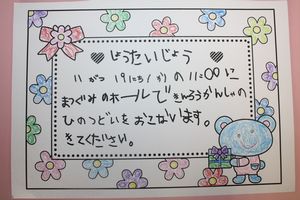 ♥しょうたいじょう♥
11がつ19にち(か)の11:00に
まつぐみのホールできんろうかんしゃの
ひのつどいをおこないます。
きてください。